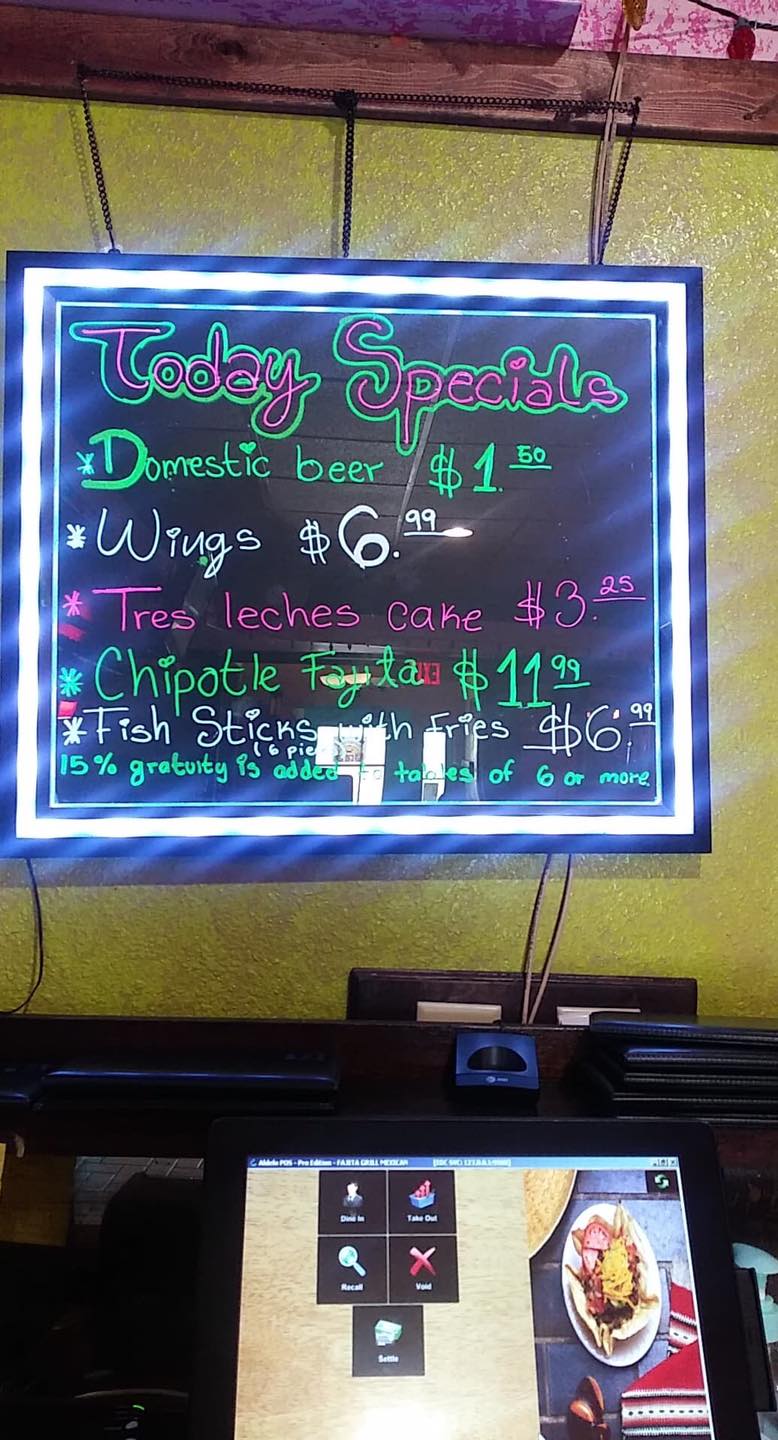 Today Specials
*Domestic beer $1.50
*Wings $6.99
*Tres leches cake $3.25
*Chipotle Fajita $11 99
*Fish Sticks with fries $6.99
(6 pie
15% gratuity is added to tables of 6 or more.
at&t
Aldelo POS - Pro Edition - FAJITA GRILL MEXICAN
Dine In
Take Out
Recall
Void
Settle